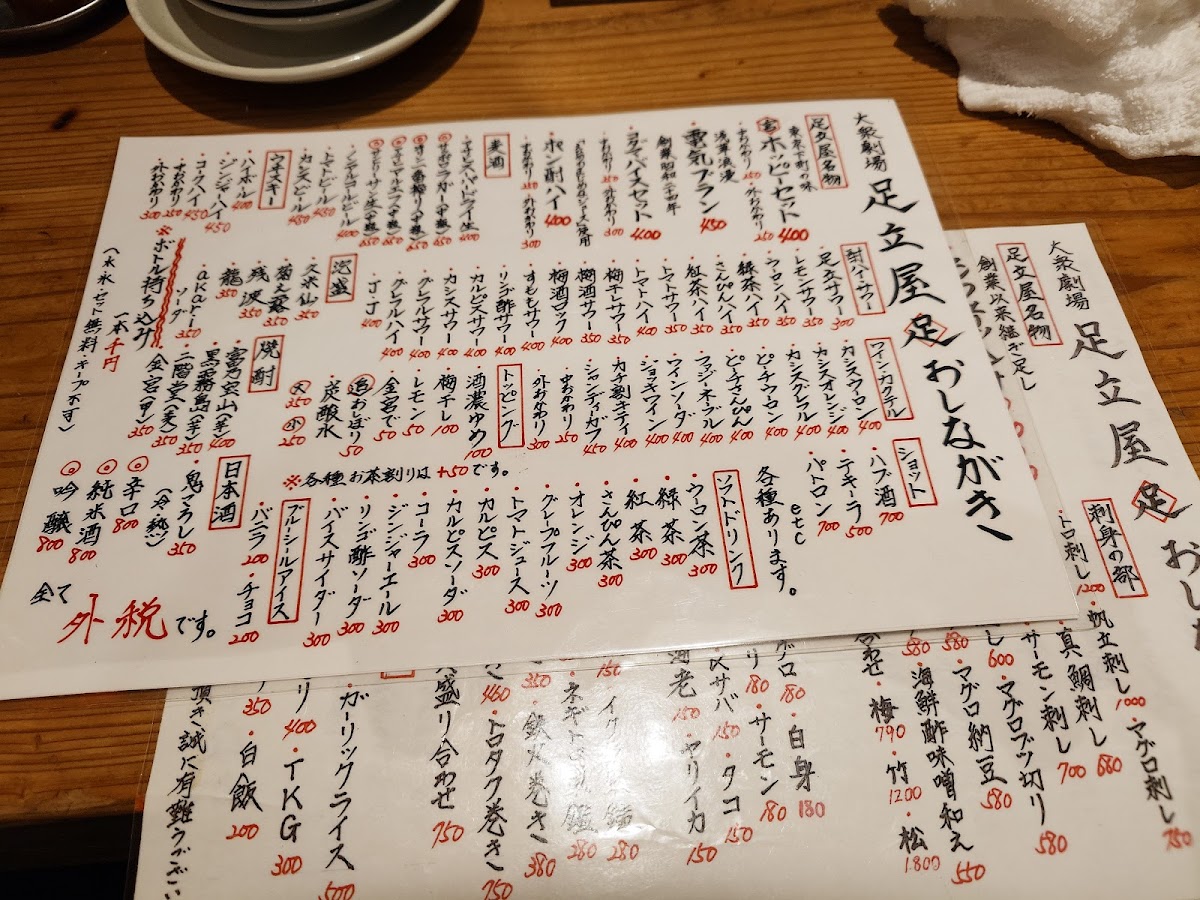 大衆劇場
足立屋 足 おしながき
足立屋名物
東京下町の味
宮ホッピーセット 400
中おかわり 250 ・外おかわり 250
浅草浪漫
電気ブラン 450
創業昭和二十四年
ヨコヤマバイスセット 400
中おかわり 250 ・外おかわり 200
ポン酎ハイ 400
中おかわり 250 ・外おかわり 300
麦酒
・アサヒスーパードライ生 400
・ノンアルコールビール 400
・トマトビール 450
・カシスビール 450
ウイスキー
・ハイボール 400
・ジンジャーハイ 450
・コークハイ 450
・中おかわり 250
・外おかわり 300
酎ハイ・サワー
・足立サワー 300
・レモンサワー 300
・ウーロンハイ 350
・緑茶ハイ 350
・さんぴんハイ 350
・紅茶ハイ 350
・トマトサワー 350
・トマトハイ 400
・梅干しサワー 350
・梅酒サワー 350
・梅酒ロック 400
・すももサワー 400
・リンゴ酢サワー 400
・カルピスサワー 400
・カシスサワー 400
・グレフルサワー 400
・グレフルハイ 400
・JJ 400
泡盛
・久米仙 350
・菊之露 350
・残波 350
・龍 350
・akaru
ソーダ 350
※ボトル持ち込み
一本千円
(水・氷セット無料 キープ不可)
ワイン・カクテル
・カシスウーロン 400
・カシスオレンジ 400
・カシスグレフル 400
・ピーチウーロン 400
・ピーチさんぴん 400
・ファジーネーブル 400
・ワインソーダ 400
・ジョッキワイン 400
・カチ割キティ 400
・シャンディガフ 450
・中おかわり 250
・外おかわり 300
トッピング
・酒濃いめ 100
・梅干し 100
・レモン 50
・金宮で 50
・追おぼり 50
・炭酸水
大 350 小 250
※各種お茶割りは+50です。
焼酎
・富乃宝山(芋) 400
・黒霧島(芋) 350
・二階堂(麦) 350
・金宮(甲) 350
ショット
・ハブ酒 700
・テキーラ 500
・パトロン 700
etc
各種あります。
ソフトドリンク
・ウロン茶 300
・緑茶 300
・紅茶 300
・さんぴん茶 300
・オレンジ 300
・グレープフルーツ 300
・トマトジュース 300
・カルピス 300
・カルピスソーダ 300
・コーラ 300
・ジンジャーエール 300
・リンゴ酢ソーダー 300
・バイスサイダー 300
ブルーシールアイス
・バニラ 200 ・チョコ 200
日本酒
・鬼ごろし 350
(冷・熱)
・辛口 800
・純米酒 800
・吟醸 800
全て
外税です。
大衆劇場
足立屋 足 おし
足立屋名物
創業以来継ぎ足し
刺身の部
・トロ刺し 1200 ・帆立刺し 1000 ・マグロ刺し 750
・真鯛刺し 680
・サーモン刺し 700
600 ・マグロブツ切り 580
580 ・マグロ納豆 580
580 ・海鮮酢味噌和え 550
合わせ ・梅 790 ・竹 1200 ・松 1.800
グロ 180 ・白身 180
180 ・サーモン 180
〆サバ 150 ・タコ 150
海老 150 ・ヤリイカ 150
150
280
280
350 ・鉄火巻き 380
460 ・トロタク巻き 750
盛り合わせ 750
・ガーリックライス 500
400 ・TKG 300
350 ・白飯 200
頂き誠に有難うござい